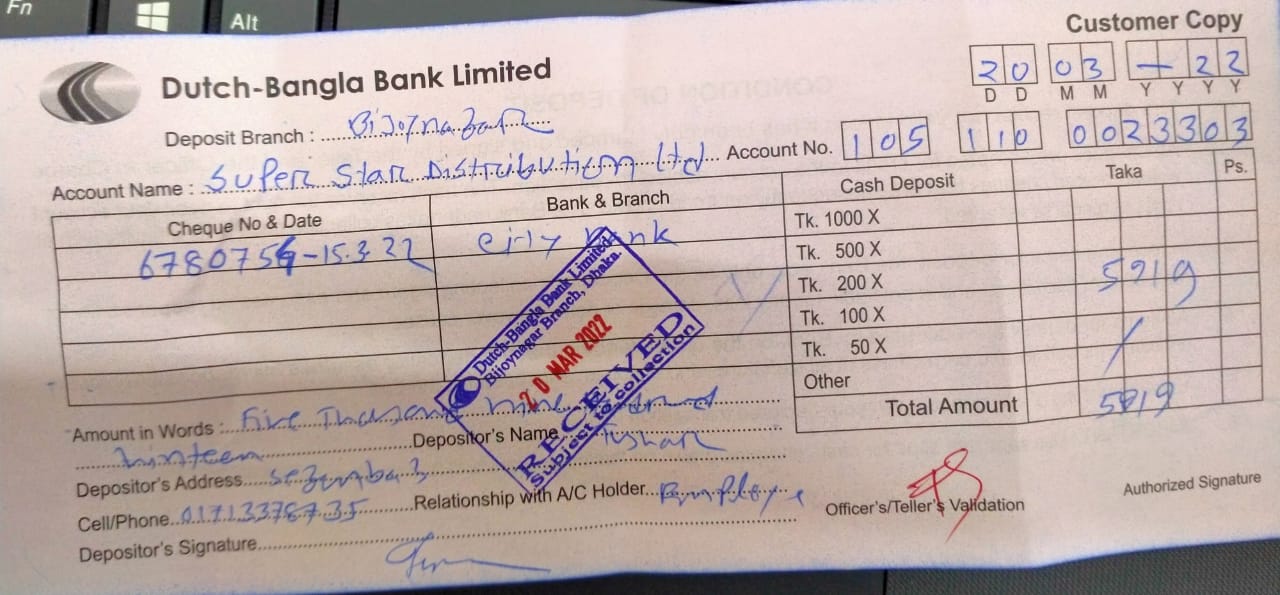 Fn
Alt
Customer Copy
Dutch-Bangla Bank Limited
20 03 —22
D D M M Y Y Y Y
Deposit Branch : Bijoynagar
Account Name : Super Star Distribution Ltd Account No. 105 110 0023303
Cheque No & Date Bank & Branch Cash Deposit Taka Ps.
6780754-15.3.22 Bank Tk. 1000 X
Tk. 500 X
Tk. 200 X 5919
Tk. 100 X
Tk. 50 X
Other
Total Amount 5919
Dutch-Bangla Bank Limited
Bijoynagar Branch, Dhaka.
20 MAR 2022
RECEIVED
Subject to collection
Amount in Words : Five Thousand Nine Hundred
Ninteen Depositor's Name Tushar
Depositor's Address
Cell/Phone 01713378735 Relationship with A/C Holder Employe
Officer's/Teller's Validation Authorized Signature
Depositor's Signature